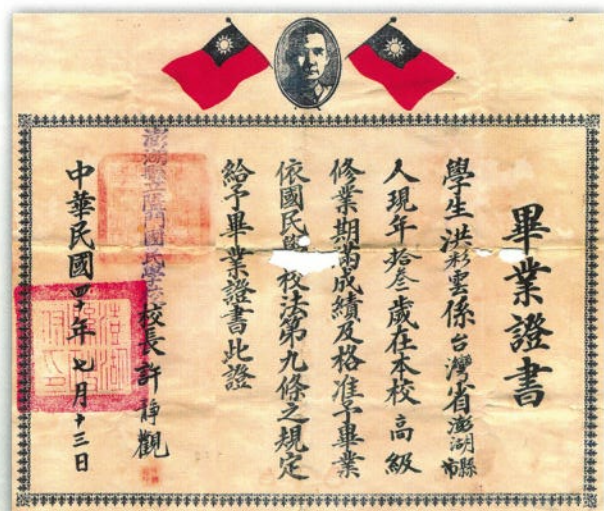 畢業證書
學生洪彩雲係台灣省澎湖縣市
人現年拾叁歲在本校高級
修業期滿成績及格准予畢業
依國民學校法第九條之規定
給予畢業證書此證
澎湖縣立隘門國民學校校長許靜觀
中華民國四十年七月十三日